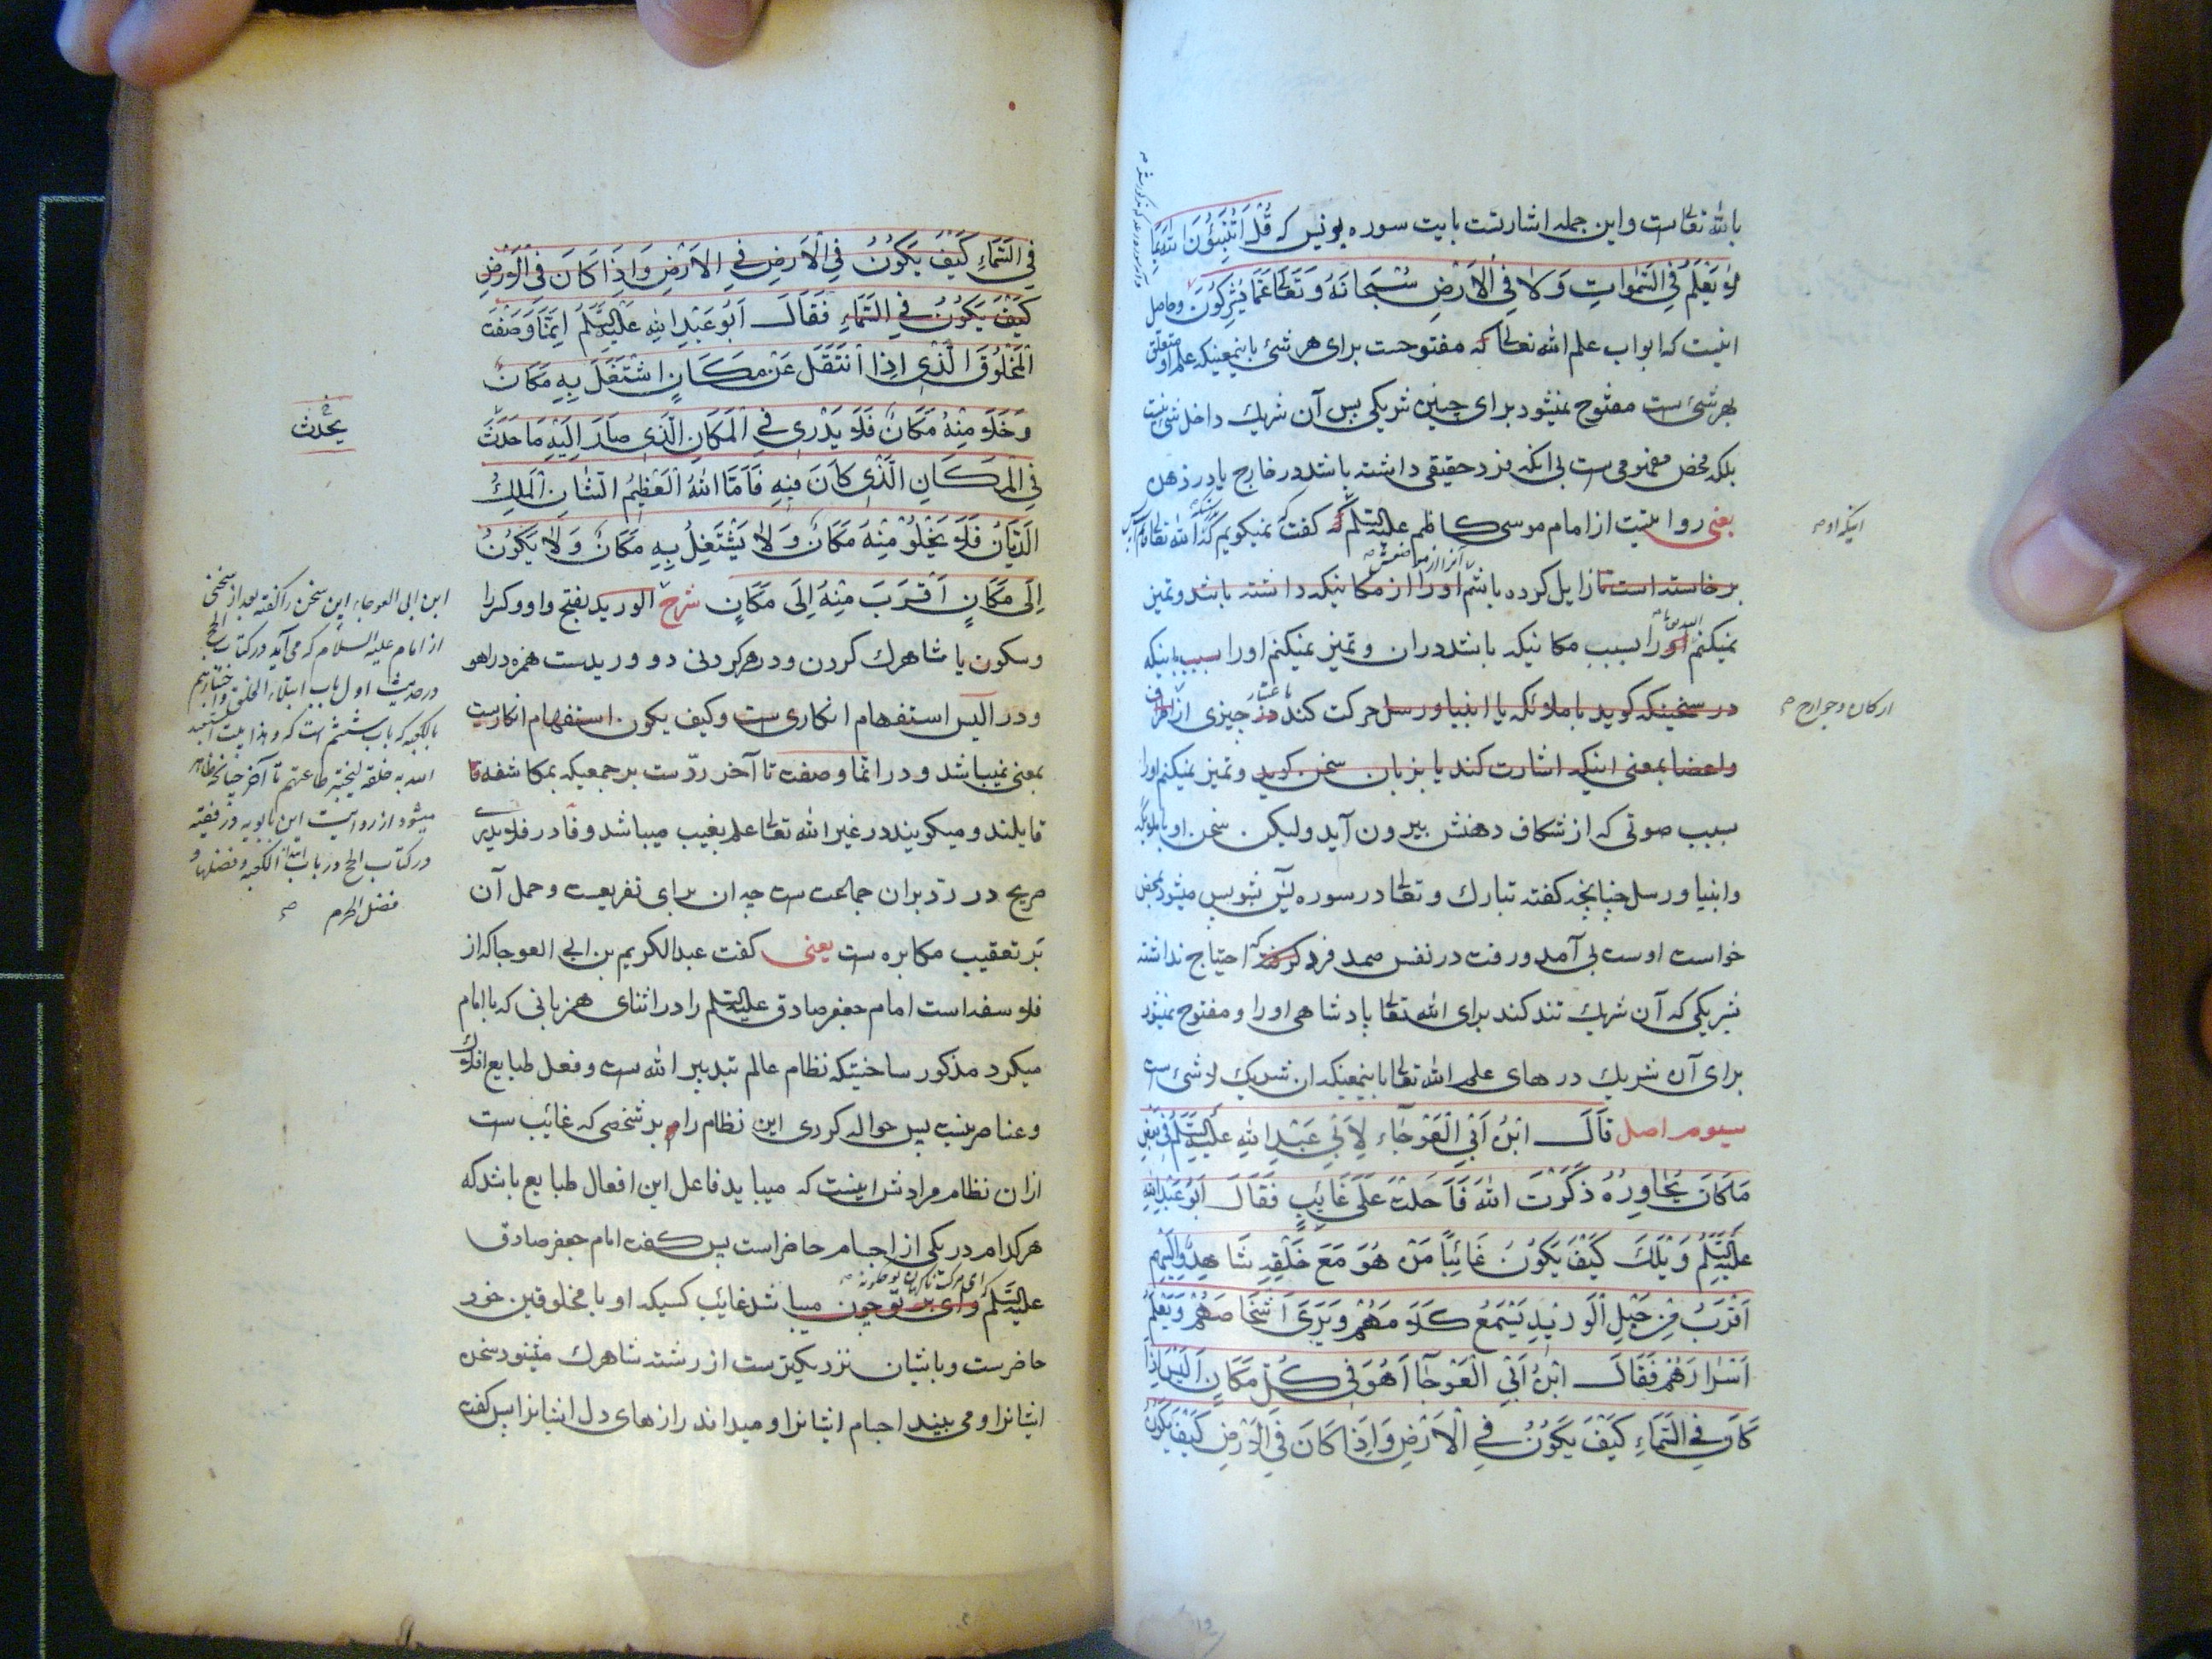 بالله تعالی است و این جمله اشارتست بآیت سوره یونس که قُلْ اَتُنَبِّئُونَ اللهَ بِمَا
لَا یَعْلَمُ فِی السَّمٰوَاتِ وَلَا فِی الْاَرْضِ سُبْحَانَهُ وَتَعَالَی عَمَّا یُشْرِکُونَ و حاصل
اینست که ابواب علم الله تعالی که مفتوحست برای هر شئ باینمعنیکه علم او متعلق
بهر شئ است مفتوح نمیشود برای چنین شریکی پس آن شریک داخل شئ نیست
بلکه محض مفهومی است بی انکه فرد حقیقی داشته باشد در خارج یا در ذهن
یعنی روایتست از امام موسی کاظم علیه السلم که گفت که نمیگویم که الله تعالی قائم
برخاسته است تا زایل کرده باشم او را از مکانیکه داشته باشد و تمیز
نمیکنم او را بسبب مکانیکه باشد دران و تمیز نمیکنم او را بسبب اینکه
در سخنیکه گوید با ملائکه یا انبیا و رسل حرکت کند در چیزی از
واعضا بمعنی اینکه اشارت کند یا بزبان سخن گوید و تمیز نمیکنم او را
بسبب صوتی که از شکاف دهنش بیرون آید ولیکن سخن او با ملائکه
وانبیا و رسل چنانچه گفته تبارک و تعالی در سوره یس بکن پس میشود بمحض
خواست اوست بی آمد و رفت در نفس صمد فرد که احتیاج نداشته
بشریکی که آن شریک تند کند برای الله تعالی پادشاهی او را و مفتوح نمیشود
برای آن شریک درهای علم الله تعالی باینمعنیکه ان شریک لا شئ است
سیوم اصل قَالَ ابْنُ اَبِی الْعَوْجَاء لِاَبِی عَبْدِ اللهِ عَلَیْهِ السَّلَمُ فِی بَعْضِ
مَا کَانَ یُحَاوِرُهُ ذَکَرْتَ اللهَ فَاَحَلْتَ عَلَی غَائِبٍ فَقَالَ اَبُو عَبْدِ اللهِ
عَلَیْهِ السَّلَمُ وَیْلَکَ کَیْفَ یَکُونُ غَائِبًا مَنْ هُوَ مَعَ خَلْقِهِ شَاهِدٌ وَاِلَیْهِمْ
اَقْرَبُ مِنْ حَبْلِ الْوَرِیدِ یَسْمَعُ کَلَامَهُمْ وَیَرَی اَشْخَاصَهُمْ وَیَعْلَمُ
اَسْرَارَهُمْ فَقَالَ ابْنُ اَبِی الْعَوْجَا اَهُوَ فِی کُلِّ مَکَانٍ اَلَیْسَ اِذَا
کَانَ فِی السَّمَاءِ کَیْفَ یَکُونُ فِی الْاَرْضِ وَاِذَا کَانَ فِی الْاَرْضِ کَیْفَ یَکُونُ
اینکه او
ارکان و جوارح
فِی السَّمَاءِ کَیْفَ یَکُونُ فِی الْاَرْضِ فِی الْاَرْضِ وَاِذَا کَانَ فِی الْاَرْضِ
کَیْفَ یَکُونُ فِی السَّمَاءِ فَقَالَ اَبُو عَبْدِ اللهِ عَلَیْهِ السَّلَمُ اِنَّمَا وَصَفْتَ
الْمَخْلُوقَ الَّذِی اِذَا انْتَقَلَ عَنْ مَکَانٍ اشْتَغَلَ بِهِ مَکَانٌ
وَخَلَا مِنْهُ مَکَانٌ فَلَا یَدْرِی فِی الْمَکَانِ الَّذِی صَارَ اِلَیْهِ مَا حَدَثَ
فِی الْمَکَانِ الَّذِی کَانَ فِیهِ فَاَمَّا اللهُ الْعَظِیمُ الشَّانِ الْمَلِکُ
الدَّیَّانُ فَلَا یَخْلُو مِنْهُ مَکَانٌ وَلَا یَشْتَغِلُ بِهِ مَکَانٌ وَلَا یَکُونُ
اِلَی مَکَانٍ اَقْرَبَ مِنْهُ اِلَی مَکَانٍ شرح الورید بفتح واو و کسر را
وسکون یا شاهرک گردن و در هر گردنی دو وریدست همزه در اهو
و در الیس استفهام انکاری ست و کیف یکون استفهام انکاریست
بمعنی نمیباشد و در انما وصفت تا آخر ردّست بر جمعیکه بمکاشفه
قایلند و میگویند در غیر الله تعالی علم بغیب میباشد و فا در فلا یدری
صریح در رد بران جماعت ست چه ان برای تفریعست و حمل آن
بر تعقیب مکابره ست یعنی گفت عبد الکریم بن ابی العوجا که از
فلاسفه است امام جعفر صادق علیه السلم را در اثنای همزبانی که با امام
میکرد مذکور ساختیکه نظام عالم بتدبیر الله ست و فعل طبایع افلاک
وعناصر نیست پس حواله کردی این نظام را بر شخصی که غائب ست
ازان نظام مرادش اینست که میباید فاعل این افعال طبایع باشد که
هر کدام در یکی از اجسام حاضر است پس گفت امام جعفر صادق
علیه السلم وای بر تو چون میباشد غائب کسیکه او با مخلوقین خود
حاضرست و بایشان نزدیکترست از رشته شاهرک میشنود سخن
ایشانرا و می بیند اجسام ایشانرا و میداند رازهای دل ایشانرا پس گفت
یحدث
ابن ابی العوجاء این سخن را گفته بعد از سخنی
از امام علیه السلام که می آید در کتاب الحج
در حدیث اول باب ابتلاء الخلق واختبارهم
بالکعبه که باب ششم است که وهذا بیت استعبد
الله به خلقه لیختبر طاعتهم تا آخر چنانچه ظاهر
میشود از روایت ابن بابویه در فقیه
در کتاب الحج در باب ابتداء الکعبه وفضلها و
فضل الحرم